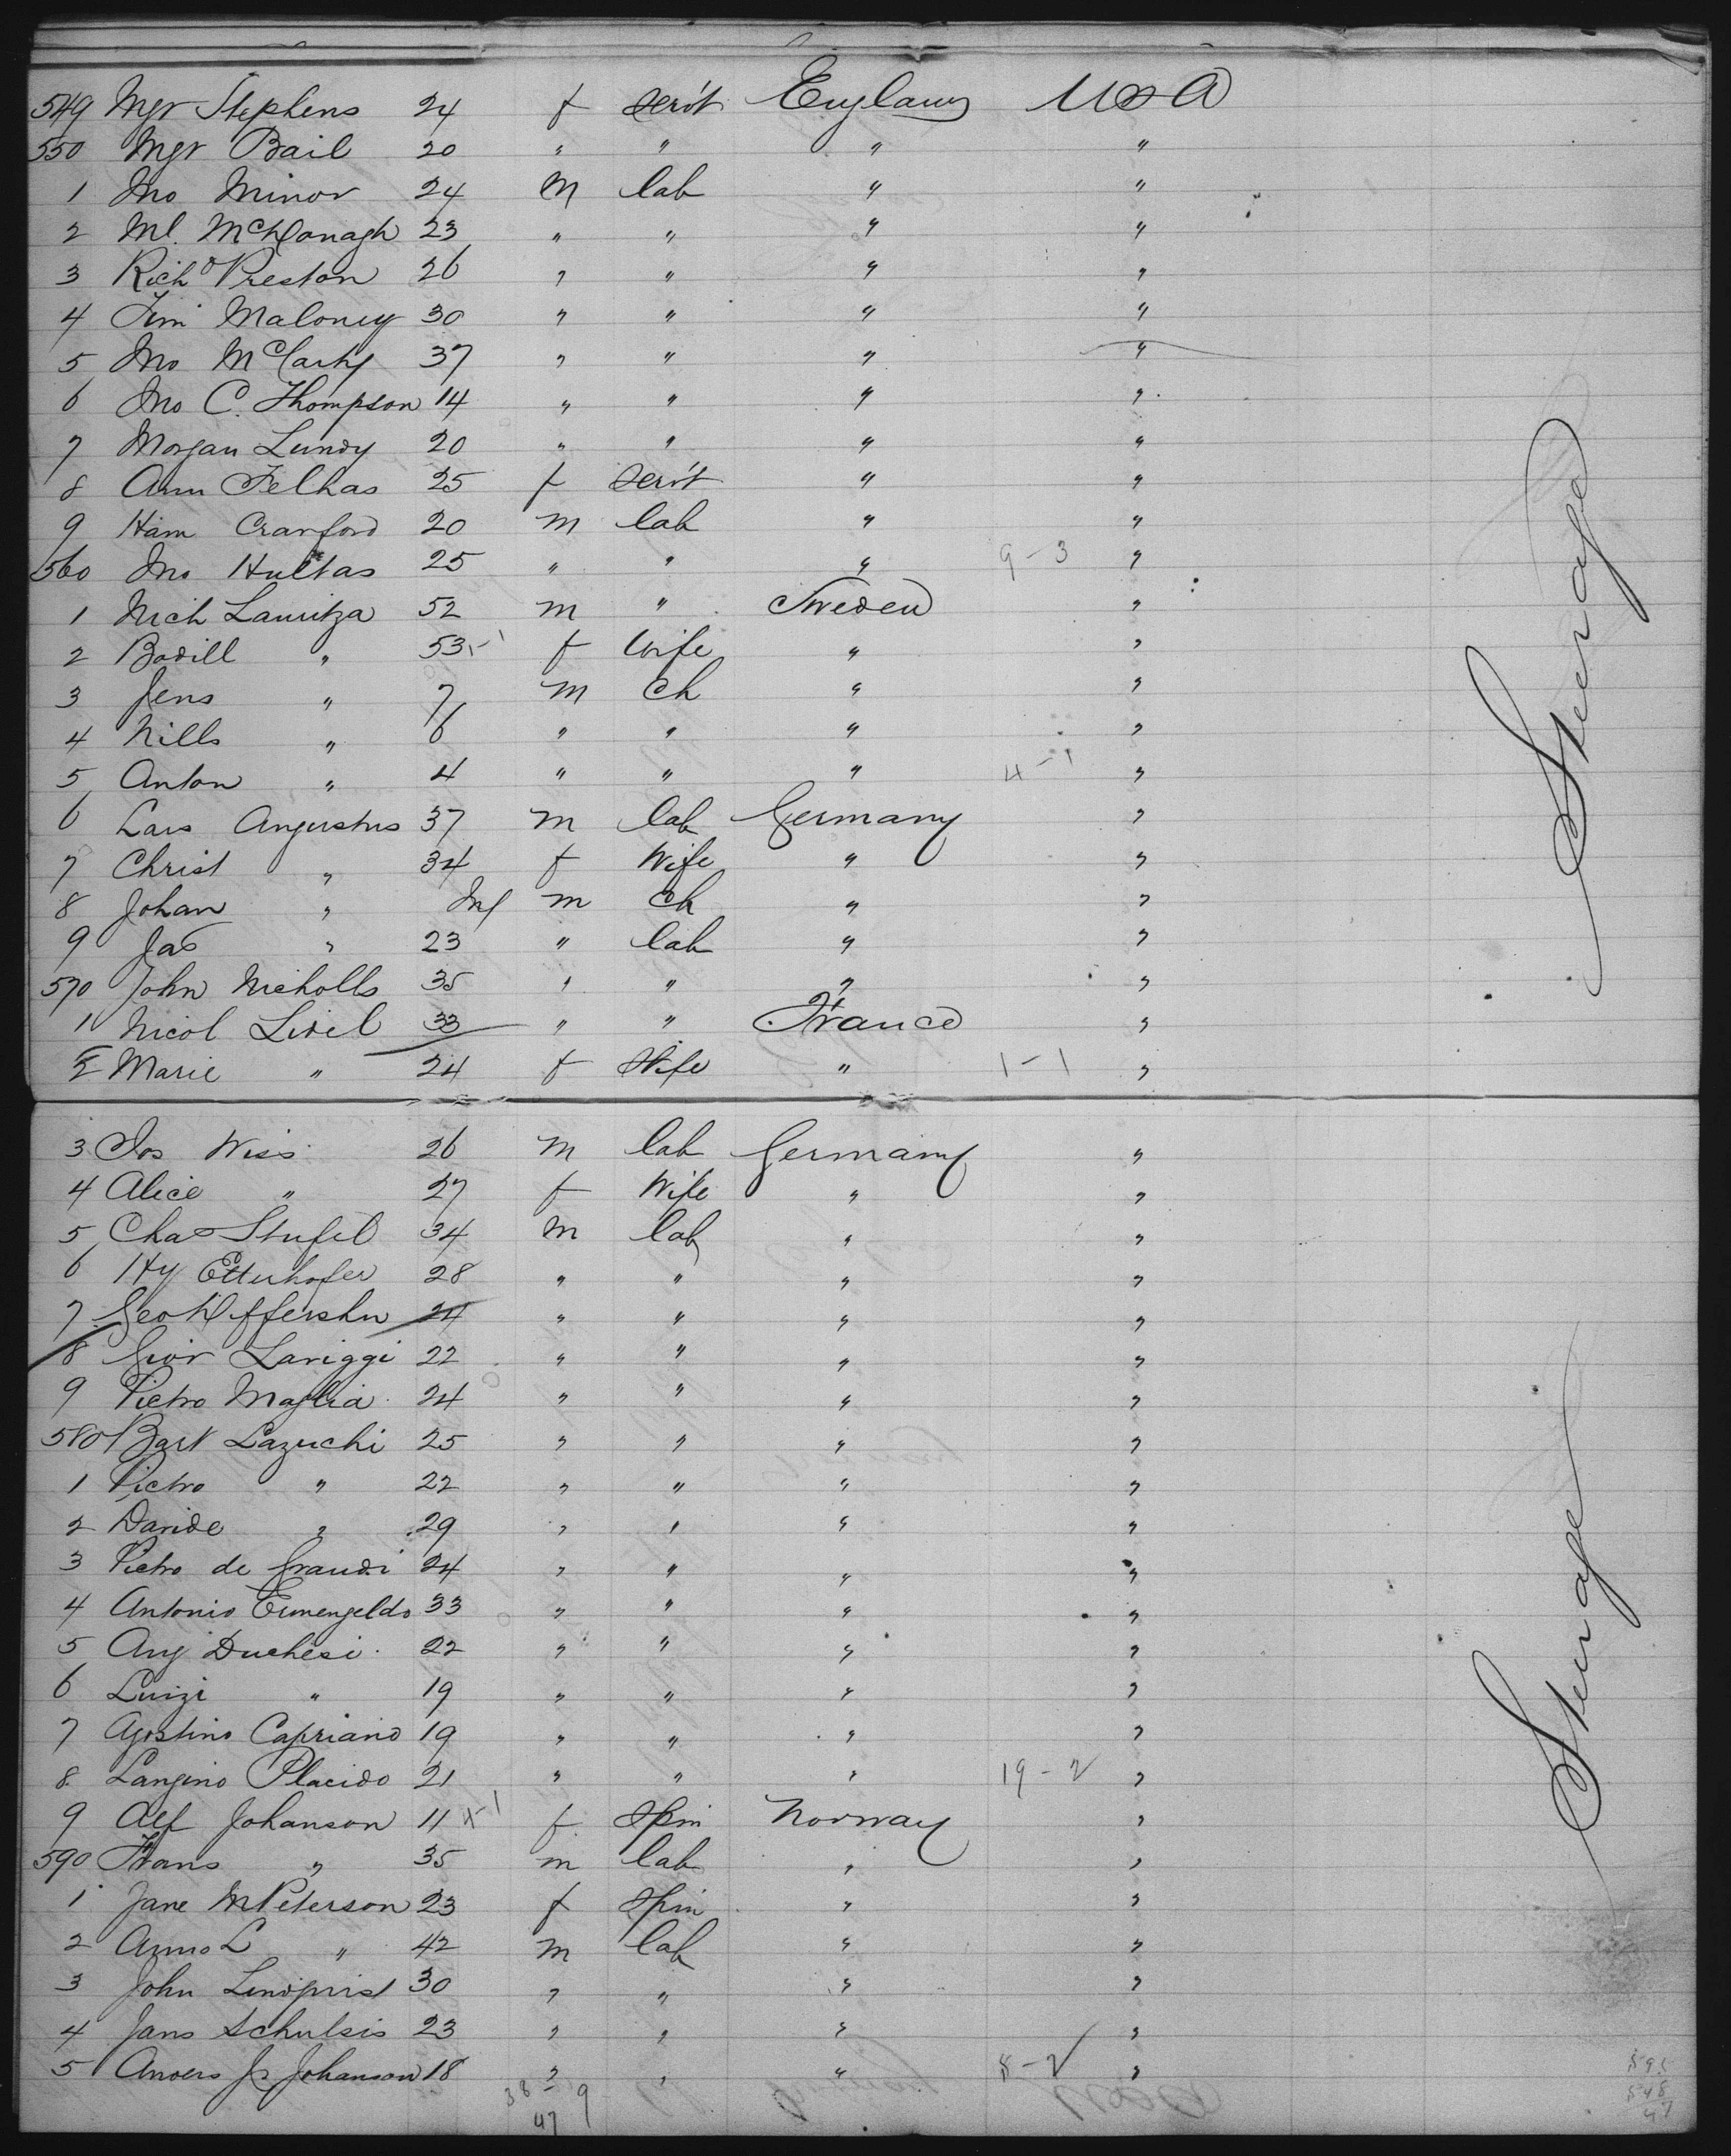 549 Mgr Stephens 24 f serv't England USA
550 Mgr Bail 20 " " " "
1 Jno Minor 24 m lab " "
2 Ml. McDonagh 23 " " " "
3 Richd Preston 26 " " " "
4 Tim Maloney 30 " " " "
5 Jno McCarty 37 " " " "
6 Jno C. Thompson 14 " " " "
7 Morgan Lundy 20 " " " "
8 Ann Felhas 25 f serv't " "
9 Ham Cranford 20 m lab " "
560 Jno Hultas 25 " " " 9-3 "
1 Nich Lauritza 52 m " Sweden "
2 Bodill " 53 f wife " "
3 Jens " 7 m ch " "
4 Nills " 6 " " " "
5 Anton " 4 " " " 4-1 "
6 Lars Angustus 37 m lab Germany "
7 Christ " 34 f Wife " "
8 Johan " Inf m ch " "
9 Jas " 23 " lab " "
570 John Nicholls 35 " " " "
1 Nicol Lidel 33 " " France "
2 Marie " 24 f Wife " 1-1 "
3 Jos Wiss 26 m lab Germany "
4 Alice " 27 f Wife " "
5 Chas Stufel 34 m lab " "
6 Hy Etterhofer 28 " " " "
7 Geo 24 " " " "
8 Gior Lariggi 22 " " " "
9 Pietro Maglia 24 " " " "
580 Bart Lazuchi 25 " " " "
1 Pietro " 22 " " " "
2 Davide " 29 " " " "
3 Pietro de Graudi 24 " " " "
4 Antonio Ermengeldo 33 " " " "
5 Ang Duchesi 22 " " " "
6 Luizi " 19 " " " "
7 Agostino Capriano 19 " " " "
8 Langino Placido 21 " " " 19-2 "
9 Alf Johanson 11 f Spin Norway "
590 Hans " 35 m lab " "
1 Jane M Peterson 23 f Spin " "
2 " 42 m lab " "
3 John Lindqvist 30 " " " "
4 Jans Schulsis 23 " " " "
5 Anders Jr Johanson 18 " " " 8-2 "
38-9
47
Steerage
Steerage
595
548
47